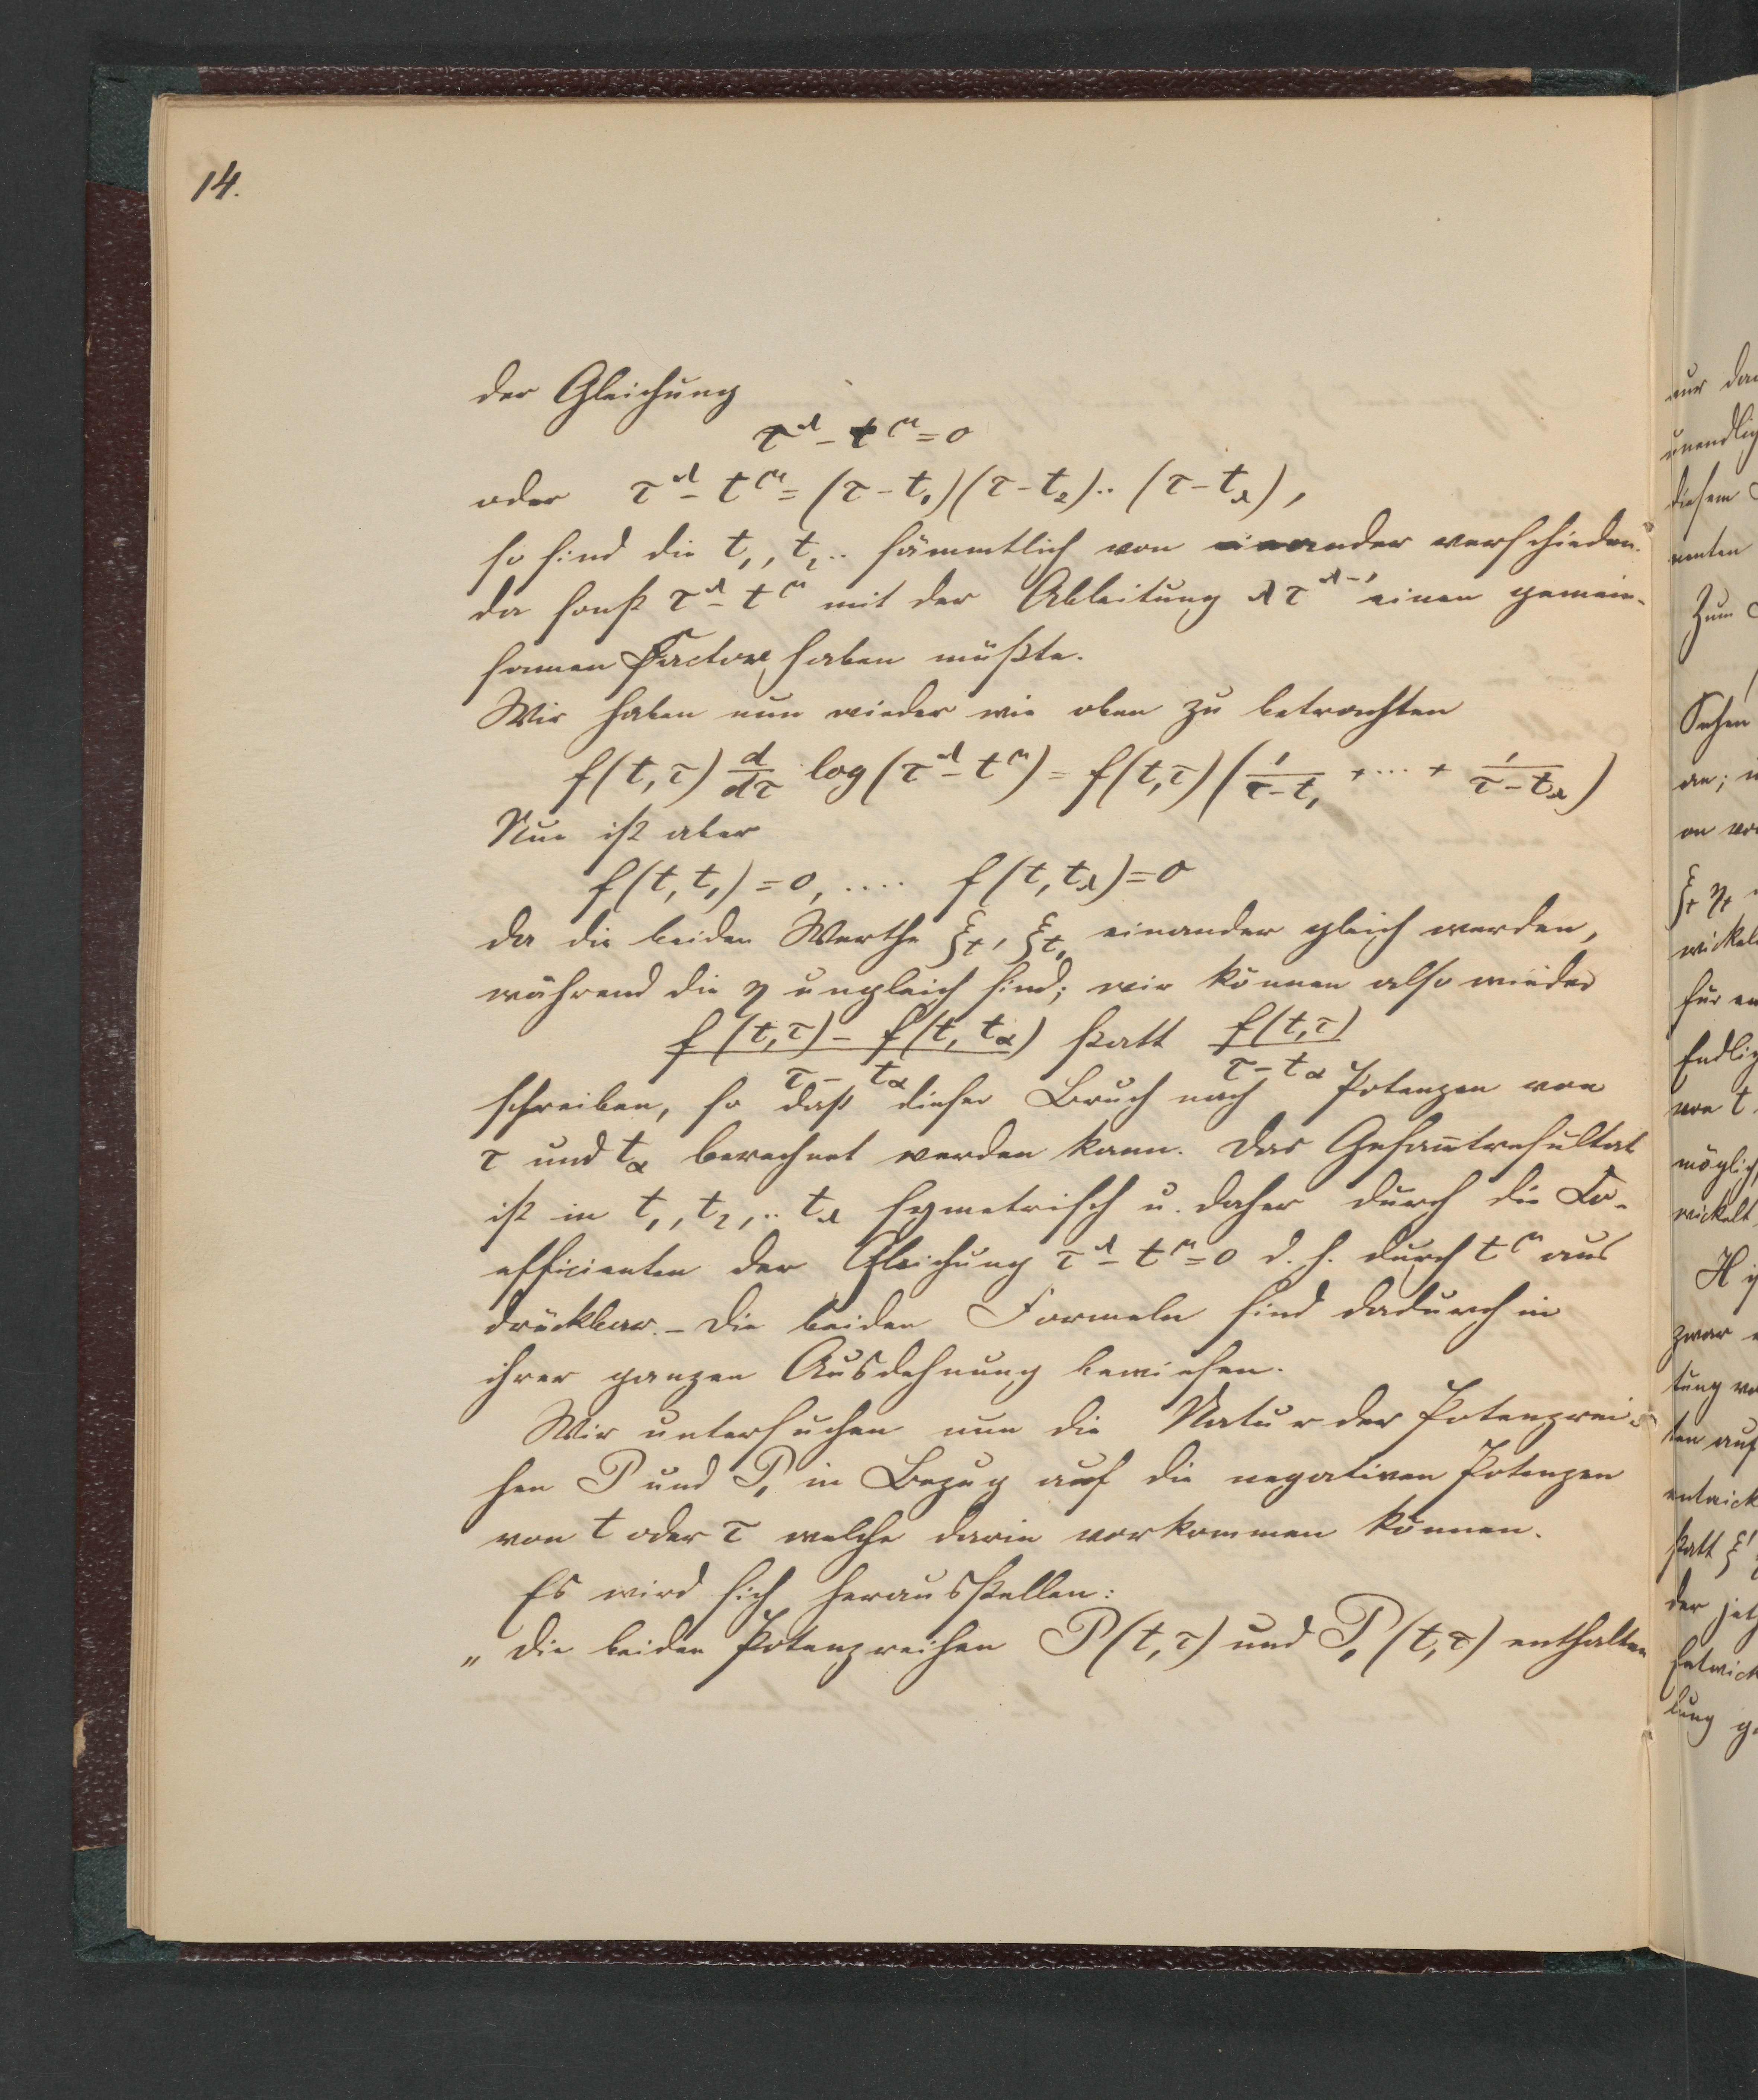 14.
der Gleichung
τ^λ - t^μ = 0
oder τ^λ - t^μ = (τ - t₁)(τ - t₂)..(τ - t_λ),
so sind die t₁, t₂.. sämmtlich von einander verschieden.
da sonst τ^λ - t^μ mit der Ableitung λτ^{λ-1} einen gemein-
samen Factor haben müßte.
Wir haben nun wieder wie oben zu betrachten
f(t,τ) d/dτ log(τ^λ - t^μ) = f(t,τ)(1/(τ-t₁) + ··· + 1/(τ-t_λ))
Nun ist aber
f(t,t₁) = 0, .... f(t,t_λ) = 0
da die beiden Werthe ξ_t, ξ_{t₁} einander gleich werden,
während die η ungleich sind; wir können also wieder
(f(t,τ) - f(t,t_α))/(τ - t_α) statt f(t,τ)/(τ - t_α)
schreiben, so daß dieser Bruch nach Potenzen von
τ und t_α berechnet werden kann. Das Gesam̄tresultat
ist in t₁, t₂,.. t_λ symetrisch u. daher durch die Co-
efficienten der Gleichung τ^λ - t^μ = 0 d. h. durch t^μ aus
drückbar. - Die beiden Formeln sind dadurch in
ihrer ganzen Ausdehnung bewiesen.
Wir untersuchen nun die Natur der Potenzrei-
hen P und P₁ in Bezug auf die negativen Potenzen
von t oder τ welche darin vorkommen können.
Es wird sich herausstellen:
„Die beiden Potenzreihen P(t,τ) und P₁(t,τ) enthalten